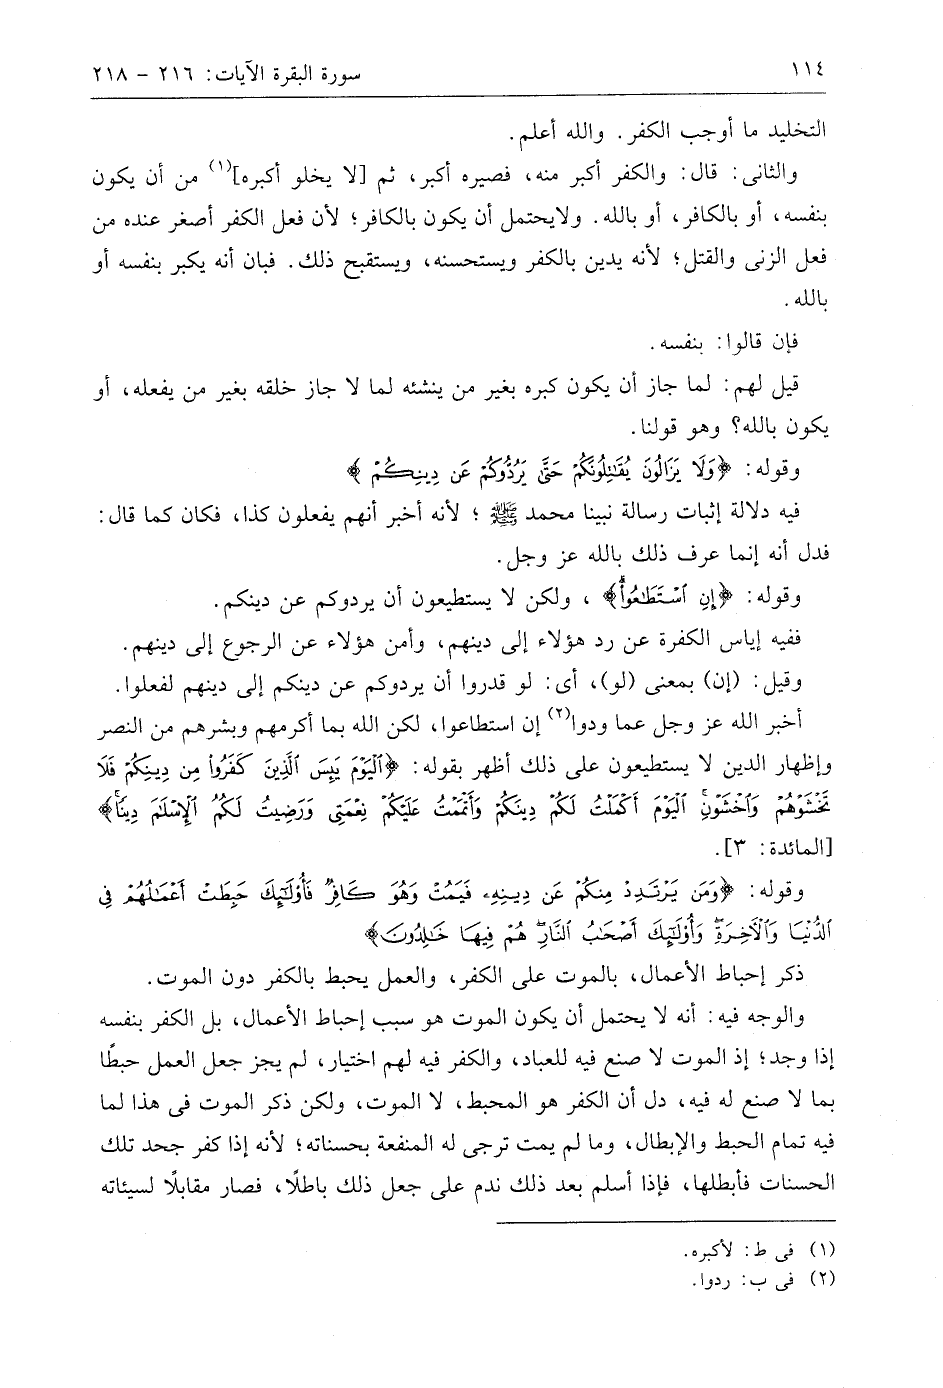 ١١٤ سورة البقرة الآيات: ٢١٦ - ٢١٨
التخليد ما أوجب الكفر. والله أعلم.
والثانى: قال: والكفر أكبر منه، فصيره أكبر، ثم [لا يخلو أكبره](١) من أن يكون
بنفسه، أو بالكافر، أو بالله. ولايحتمل أن يكون بالكافر؛ لأن فعل الكفر أصغر عنده من
فعل الزنى والقتل؛ لأنه يدين بالكفر ويستحسنه، ويستقبح ذلك. فبان أنه يكبر بنفسه أو
بالله.
فإن قالوا: بنفسه.
قيل لهم: لما جاز أن يكون كبره بغير من ينشئه لما لا جاز خلقه بغير من يفعله، أو
يكون بالله؟ وهو قولنا.
وقوله: ﴿وَلَا يَزَالُونَ يُقَٰتِلُونَكُمْ حَتَّىٰ يَرُدُّوكُمْ عَن دِينِكُمْ﴾
فيه دلالة إثبات رسالة نبينا محمد ﷺ ؛ لأنه أخبر أنهم يفعلون كذا، فكان كما قال:
فدل أنه إنما عرف ذلك بالله عز وجل.
وقوله: ﴿إِنِ ٱسْتَطَٰعُوا۟ۚ﴾ ، ولكن لا يستطيعون أن يردوكم عن دينكم.
ففيه إياس الكفرة عن رد هؤلاء إلى دينهم، وأمن هؤلاء عن الرجوع إلى دينهم.
وقيل: (إن) بمعنى (لو)، أى: لو قدروا أن يردوكم عن دينكم إلى دينهم لفعلوا.
أخبر الله عز وجل عما ودوا(٢) إن استطاعوا، لكن الله بما أكرمهم وبشرهم من النصر
وإظهار الدين لا يستطيعون على ذلك أظهر بقوله: ﴿ٱلْيَوْمَ يَئِسَ ٱلَّذِينَ كَفَرُوا۟ مِن دِينِكُمْ فَلَا
تَخْشَوْهُمْ وَٱخْشَوْنِۚ ٱلْيَوْمَ أَكْمَلْتُ لَكُمْ دِينَكُمْ وَأَتْمَمْتُ عَلَيْكُمْ نِعْمَتِى وَرَضِيتُ لَكُمُ ٱلْإِسْلَٰمَ دِينًاۚ﴾
[المائدة: ٣].
وقوله: ﴿وَمَن يَرْتَدِدْ مِنكُمْ عَن دِينِهِۦ فَيَمُتْ وَهُوَ كَافِرٌ فَأُو۟لَٰٓئِكَ حَبِطَتْ أَعْمَٰلُهُمْ فِى
ٱلدُّنْيَا وَٱلْءَاخِرَةِۖ وَأُو۟لَٰٓئِكَ أَصْحَٰبُ ٱلنَّارِۖ هُمْ فِيهَا خَٰلِدُونَ﴾
ذكر إحباط الأعمال، بالموت على الكفر، والعمل يحبط بالكفر دون الموت.
والوجه فيه: أنه لا يحتمل أن يكون الموت هو سبب إحباط الأعمال، بل الكفر بنفسه
إذا وجد؛ إذ الموت لا صنع فيه للعباد، والكفر فيه لهم اختيار، لم يجز جعل العمل حبطًا
بما لا صنع له فيه، دل أن الكفر هو المحبط، لا الموت، ولكن ذكر الموت فى هذا لما
فيه تمام الحبط والإبطال، وما لم يمت ترجى له المنفعة بحسناته؛ لأنه إذا كفر جحد تلك
الحسنات فأبطلها، فإذا أسلم بعد ذلك ندم على جعل ذلك باطلًا، فصار مقابلًا لسيئاته
(١) فى ط: لأكبره.
(٢) فى ب: ردوا.